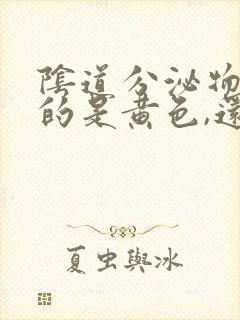 陰道分泌物
的是黃色,還
夏虫與冰